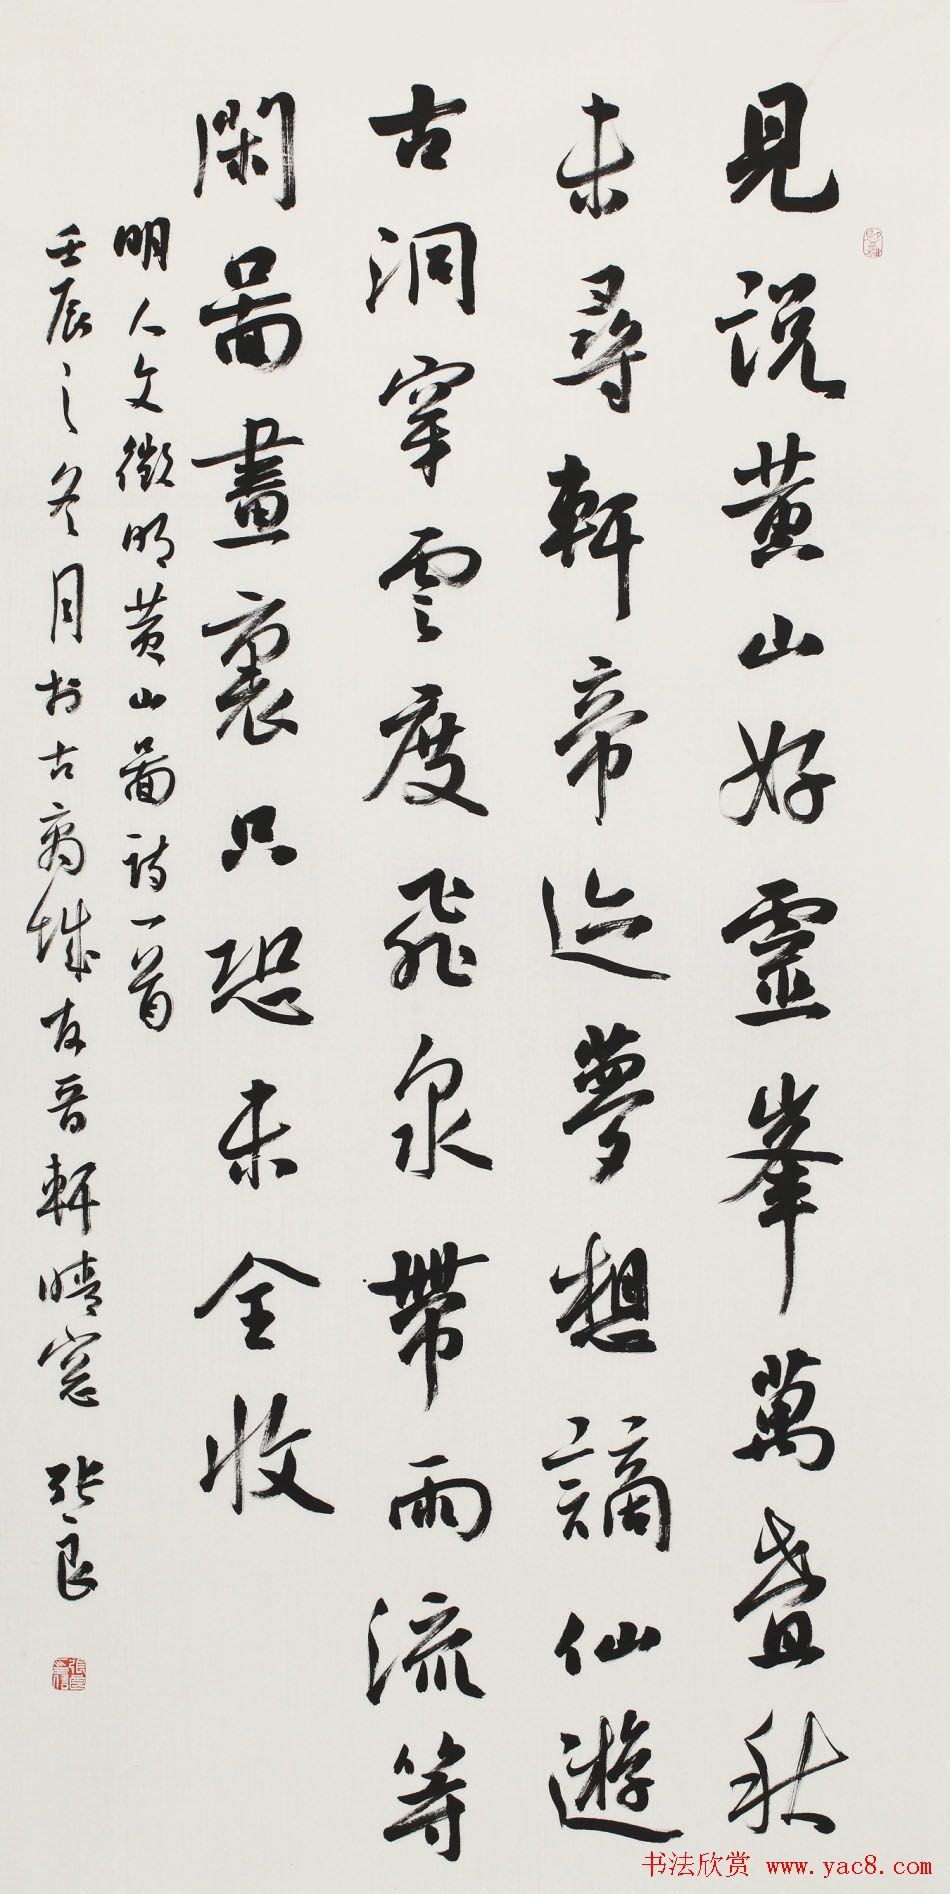 見説黄山好靈峯萬叠秋
未尋軒帝迹夢想謫仙遊
古洞穿雲度飛泉帶雨流等
閑啚畫裏只恐未全收
明人文徵明黄山啚詩一首
壬辰之冬月於古城友軒晴窓 張良
书法欣赏 www.yac8.com